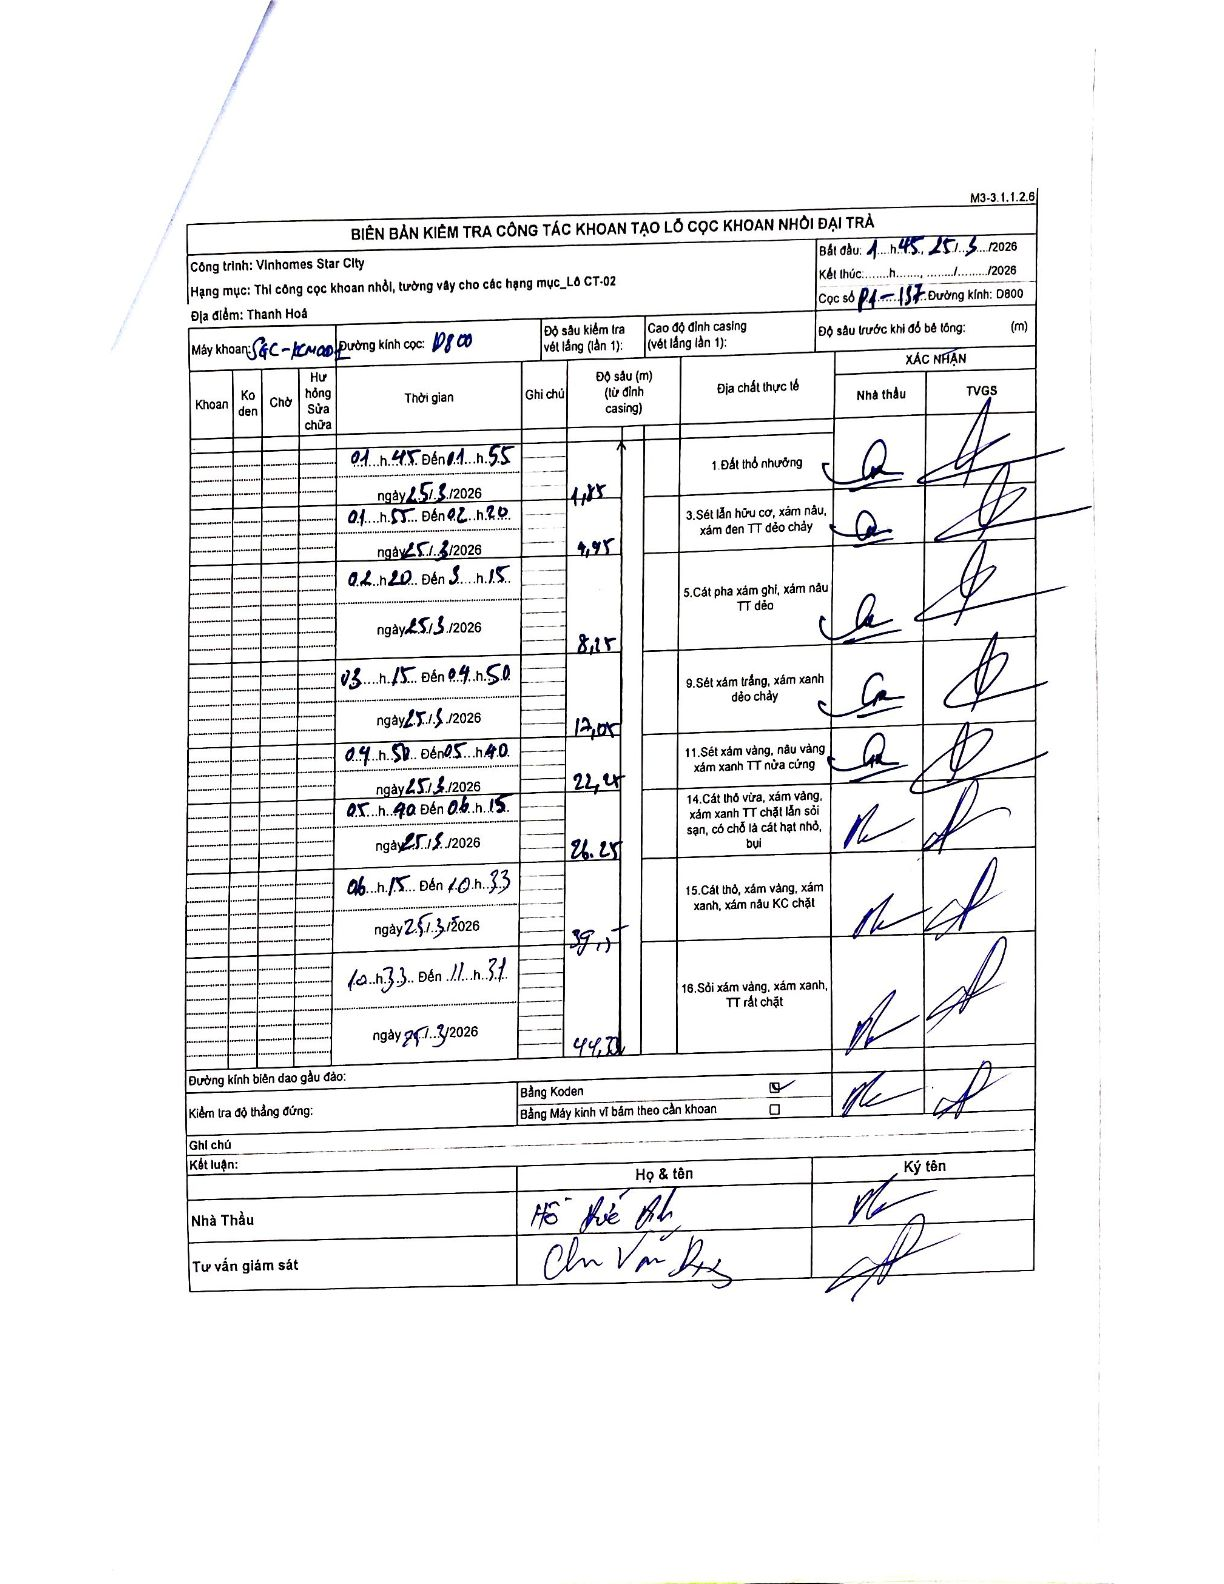 M3-3.1.1.2.6
BIÊN BẢN KIỂM TRA CÔNG TÁC KHOAN TẠO LỖ CỌC KHOAN NHỒI ĐẠI TRÀ
Công trình: Vinhomes Star City
Hạng mục: Thi công cọc khoan nhồi, tường vây cho các hạng mục_Lô CT-02
Địa điểm: Thanh Hoá
Bắt đầu: 1...h.45, 25/..3.../2026
Kết thúc:.......h......., ......../........./2026
Cọc số P1-137 Đường kính: D800
Máy khoan: Đường kính cọc: D800
Độ sâu kiểm tra vét lắng (lần 1):
Cao độ đỉnh casing (vét lắng lần 1):
Độ sâu trước khi đổ bê tông: (m)
Khoan
Ko den
Chờ
Hư hỏng Sửa chữa
Thời gian
Ghi chú
Độ sâu (m) (từ đỉnh casing)
Địa chất thực tế
XÁC NHẬN
Nhà thầu
TVGS
01...h.45. Đến 01...h.55
ngày 25/.3./2026
1,85
1.Đất thổ nhưỡng
01....h.55.. Đến 02..h.20..
ngày 25/..3/2026
4,45
3.Sét lẫn hữu cơ, xám nâu,
xám đen TT dẻo chảy
02..h20.. Đến 3....h.15..
ngày 25/3./2026
8,25
5.Cát pha xám ghi, xám nâu
TT dẻo
03....h.15... Đến 04..h.50.
ngày 25/.3./2026
17,05
9.Sét xám trắng, xám xanh
dẻo chảy
04..h.50.. Đến 05...h40.
ngày 25/.3./2026
22,25
11.Sét xám vàng, nâu vàng
xám xanh TT nửa cứng
05...h.40 Đến 06..h.15.
ngày 25/.3./2026
26.25
14.Cát thô vừa, xám vàng,
xám xanh TT chặt lẫn sỏi
sạn, có chỗ là cát hạt nhỏ,
bụi
06...h.15... Đến 10.h.33
ngày 25/.3./2026
15.Cát thô, xám vàng, xám
xanh, xám nâu KC chặt
10..h33.. Đến .11...h.31.
ngày 25/..3/2026
44,33
16.Sỏi xám vàng, xám xanh,
TT rất chặt
Đường kính biên dao gầu đào:
Kiểm tra độ thẳng đứng:
Bằng Koden ☑
Bằng Máy kinh vĩ bám theo cần khoan ☐
Ghi chú
Kết luận:
Họ & tên
Ký tên
Nhà Thầu
Hồ
Tư vấn giám sát
Chu Văn